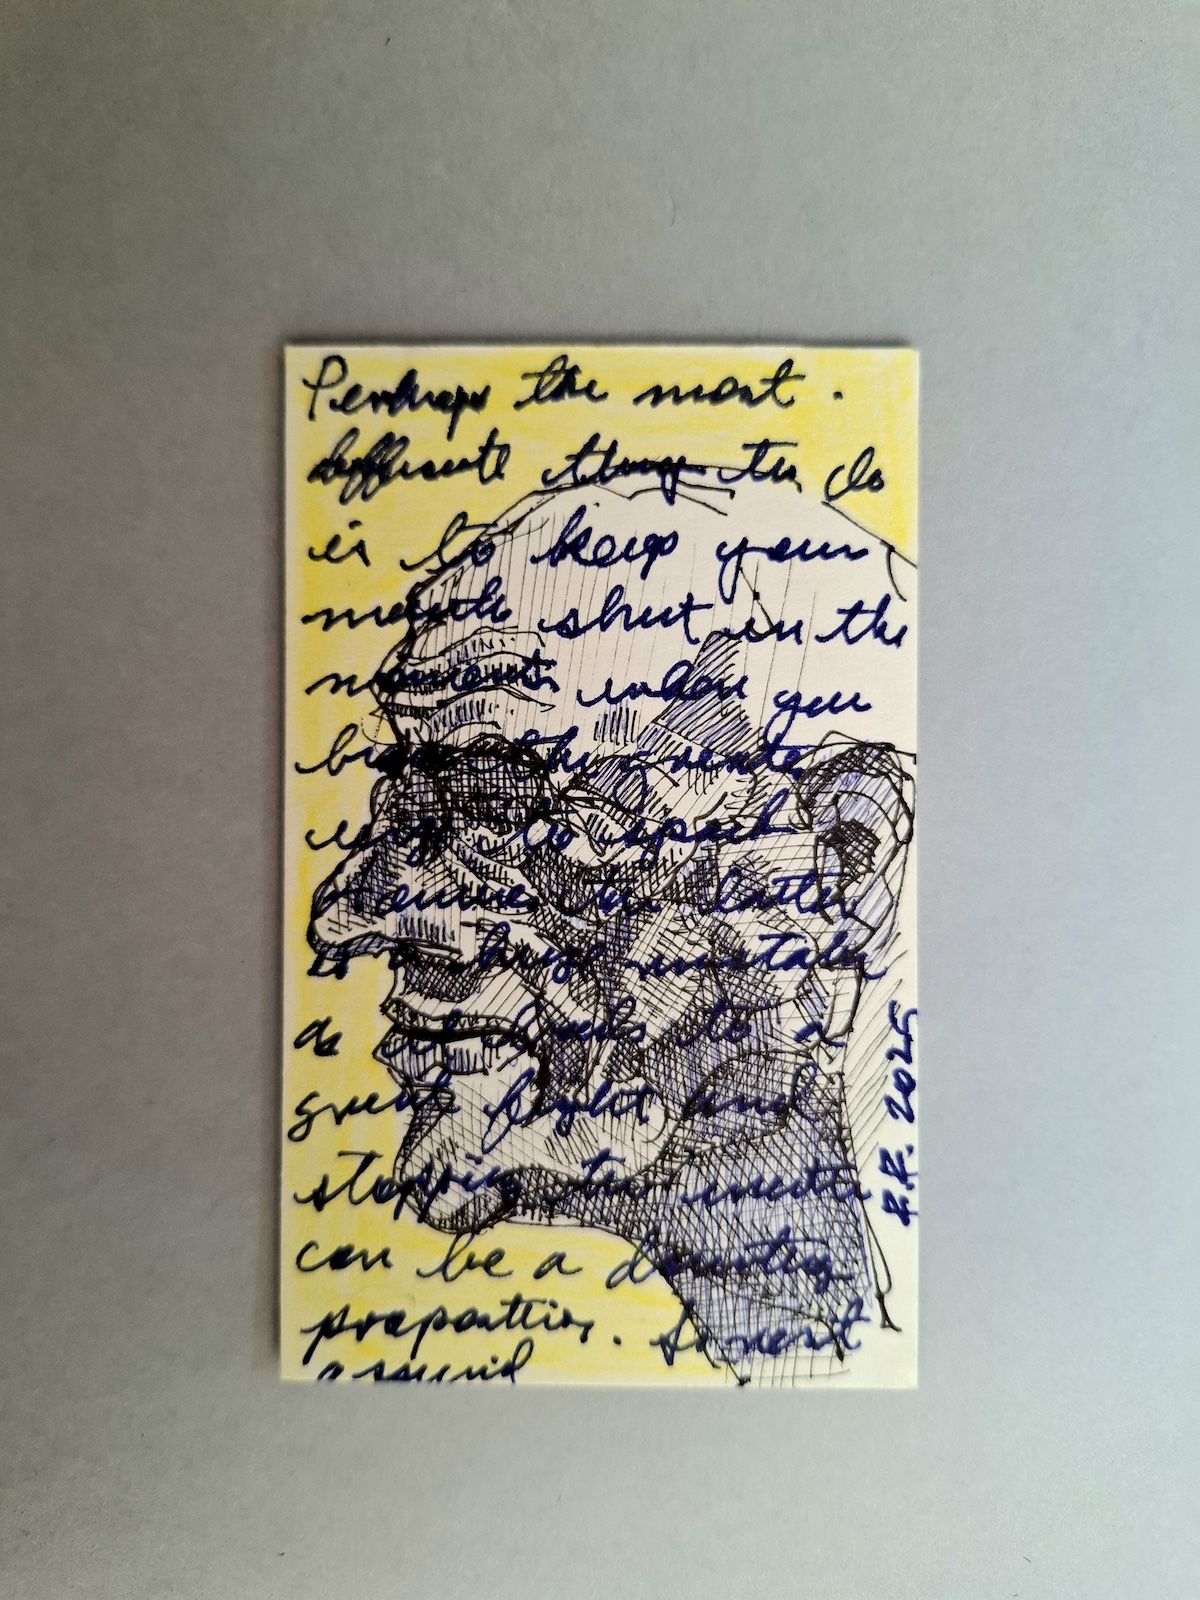 Perhaps the most
difficult thing to do
is to keep your
mouth shut in the
moments when you
have the greatest
urge to speak
the latter
is a huge mistake
as it leads to a
great fight and
stopping the
can be a daunting
proposition. So rest
assured
R.R. 2025